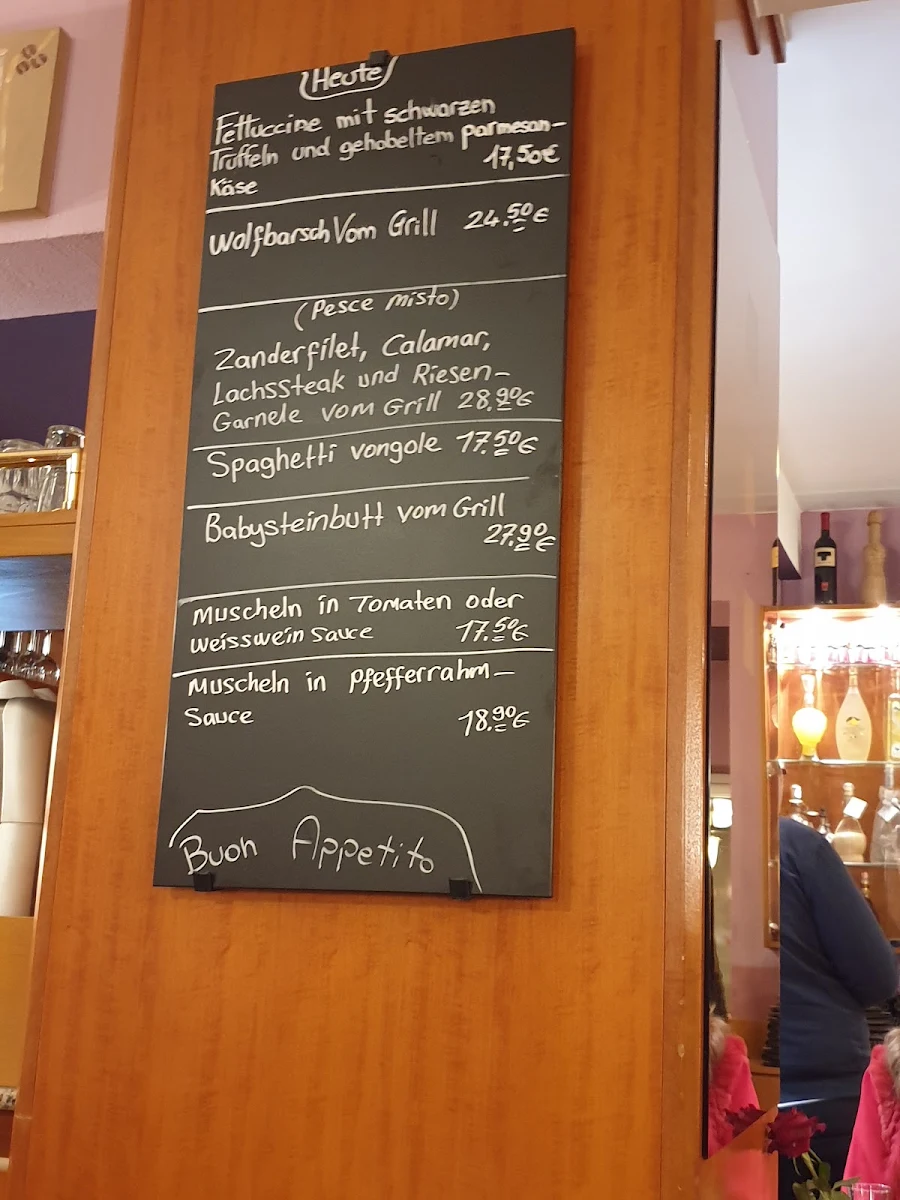 Heute
Fettuccine mit schwarzen
Trüffeln und gehobeltem parmesan-
Käse 17,50€
Wolfbarsch Vom Grill 24.50€
(Pesce misto)
Zanderfilet, Calamar,
LachsSteak und Riesen-
Garnele vom Grill 28.90€
Spaghetti vongole 17.50€
Babysteinbutt vom Grill
27.90€
Muscheln in Tomaten oder
Weisswein Sauce 17.50€
Muscheln in Pfefferrahm-
Sauce 18.90€
Buon Appetito